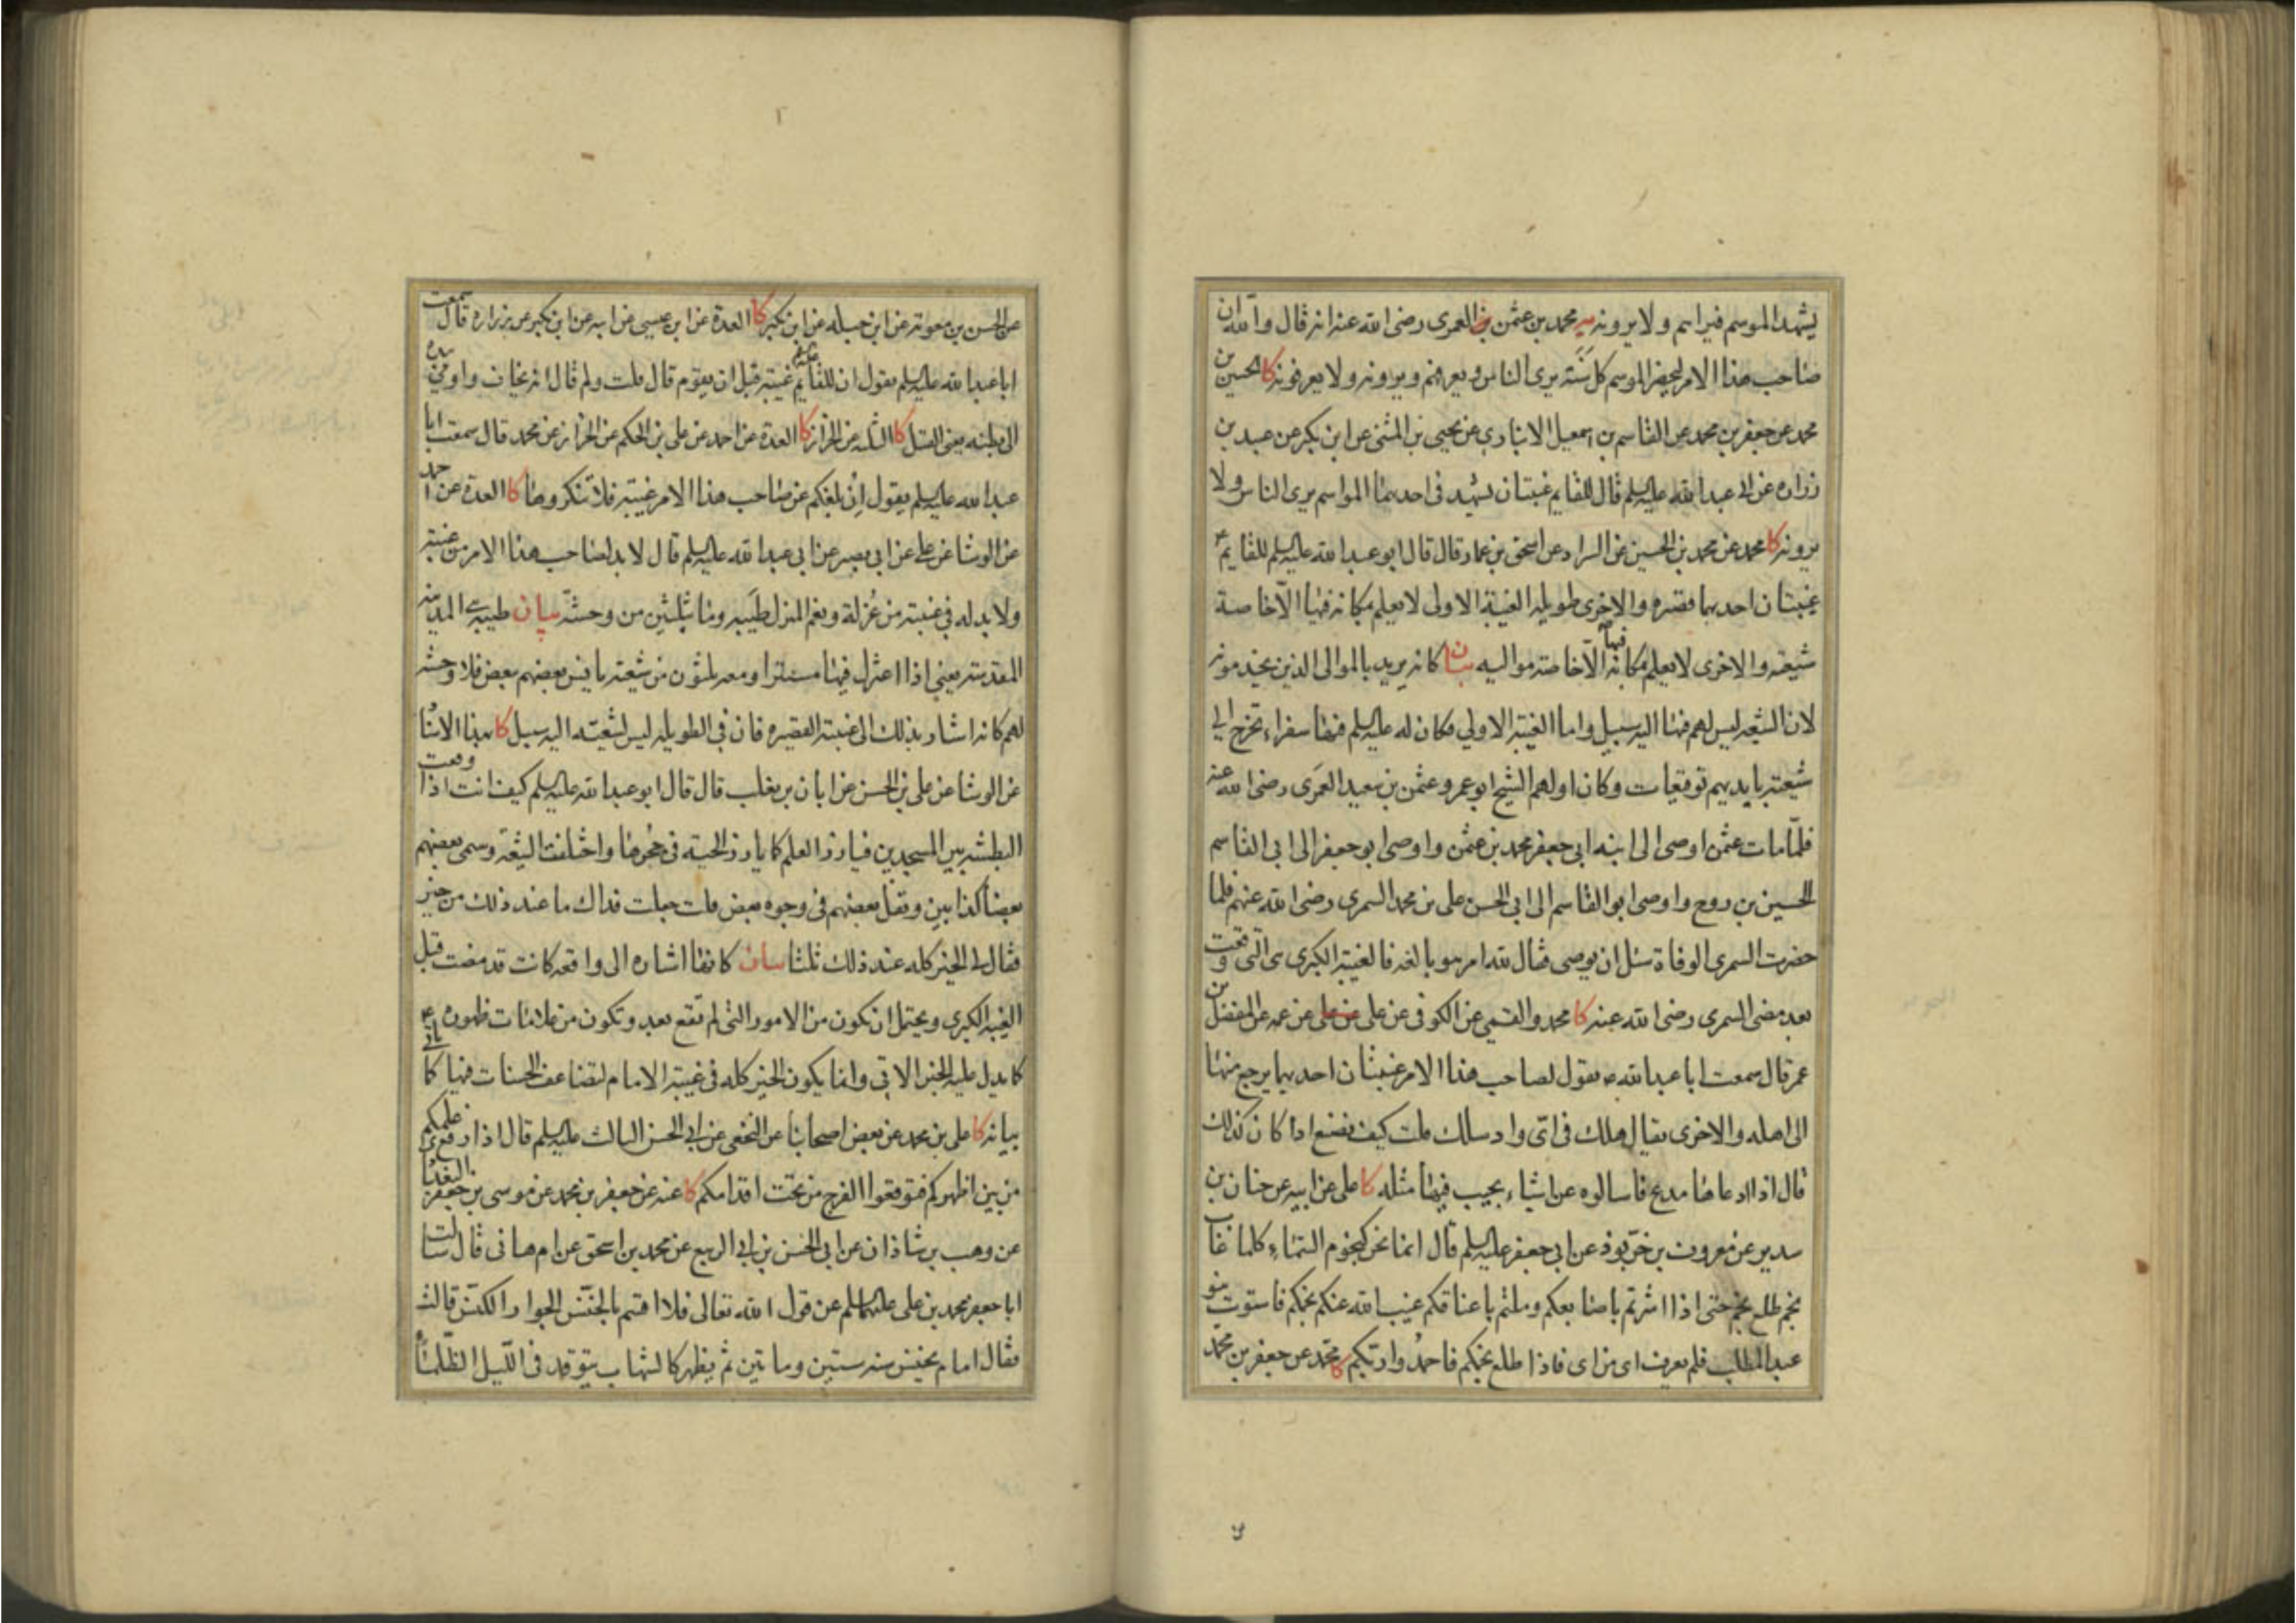 يشهد الموسم فيراهم ولا يرونه يه محمد بن عثمن العمرى رضى الله عنه انه قال والله ان
صاحب هذا الامر ليحضر الموسم كل سنة يرى الناس ويعرفهم ويرونه ولا يعرفونه كا الحسين بن
محمد عن جعفر بن محمد عن القاسم بن اسمعيل الانبارى عن يحيى بن المثنى عن ابن بكير عن عبيد بن
زراره عن ابى عبد الله عليه السلم قال للقايم غيبتان يشهد فى احديهما المواسم يرى الناس ولا
يرونه كا محمد عن محمد بن الحسين عن السراد عن اسحق بن عمار قال قال ابو عبد الله عليه السلم للقايم ع
غيبتان احديهما قصيره والاخرى طويله الغيبة الاولى لا يعلم بمكانه فيها الّا خاصة
شيعته والاخرى لا يعلم بمكانه فيها الّا خاصة مواليه بيان كانه يريد بالموالى الذين يخدمونه
لان الشيعه ليس لهم فيها اليه سبيل واما الغيبة الاولى فكان له عليه السلم فيها سفراء تخرج الى
شيعته بايديهم توقيعات وكان اولهم الشيخ ابو عمرو عثمن بن سعيد العمرى رضى الله عنه
فلمّا مات عثمن اوصى الى ابنه ابى جعفر محمد بن عثمن واوصى ابو جعفر الى ابى القاسم
الحسين بن روح واوصى ابو القاسم الى ابى الحسن على بن محمد السمرى رضى الله عنهم فلما
حضرت السمرى الوفاة سئل ان يوصى فقال لله امر هو بالغه فالغيبة الكبرى هى التى وقعت
بعد مضى السمرى رضى الله عنه كا محمد والقمي عن الكوفى عن على عن على عن عمه عن المفضل بن
عمر قال سمعت ابا عبد الله ع يقول لصاحب هذا الامر غيبتان احديهما يرجع منها
الى اهله والاخرى يقال هلك فى اىّ واد سلك قلت كيف نصنع اذا كان كذلك
قال اذا ادعاها مدع فاسالوه عن اشياء يجيب فيها مثله كا على عن ابيه عن حنان بن
سدير عن معروف بن خرّبوذ عن ابى جعفر عليه السلم قال انما نحن كنجوم السّماء كلما غاب
نجم طلع نجم حتى اذا اشرتم باصابعكم وملتم باعناقكم غيب الله عنكم نجمكم فاستوت بنو
عبد المطلب فلم يعرف اى من اى فاذا طلع نجمكم فاحمدُوا ربّكم كا محمد عن جعفر بن محمد
عن الحسن بن معويه عن ابن جبله عن ابن بكير كا العدة عن ابن عيسى عن ابيه عن ابن بكير عن زراره قال سمعت
ابا عبد الله عليه السلم يقول ان للقايم عليه غيبة قبل ان يقوم قال قلت ولم قال انه يخاف واومى بيده
الى بطنه يعنى القتل كا الثلثه عن الخراز كا العدة عن احمد عن على بن الحكم عن الخراز عن محمد قال سمعت ابا
عبد الله عليه السلم يقول اِن بلغكم عن صاحب هذا الامر غيبته فلا تنكروها كا العدة عن احمد
عن الوشا عن على عن ابى بصير عن ابى عبد الله عليه السلم قال لا بد لصاحب هذا الامر من غيبته
ولا بد له فى غيبته من عُزلة ونعم المنزل طَيبه وما بثلثين من وحشة بيان طيبه هى المدينه
المقدسه يعنى اذا اعتزل فيها مستترا ومعه ثلثون من شيعته يانس بعضهم ببعض فلا وحشه
لهم كانه اشار بذلك الى غيبته القصيره فان فى الطويله ليس لشيعته اليه سبيل كا بهذا الاسنا
عن الوشا عن على بن الحسن عن ابان بن تغلب قال قال ابو عبد الله عليه السلم كيف انت اذا وقعت
البطشه بين المسجدين فيارز العلم كما يارز الحية فى جُحرها واختلفت الشيعة وسمى بعضهم
بعضا كذابين وتفل بعضهم فى وجوه بعض قلت جعلت فداك ما عند ذلك من خير
فقال لى الخير كله عند ذلك ثلثا بيان كانها اشاره الى واقعه كانت قد مضت قبل
الغيبه الكبرى ويحتمل ان تكون من الامور التى لم تقع بعد وتكون من علامات ظهوره ع
كما يدل عليه الخبر الاتى وانما يكون الخير كله فى غيبة الامام لتضاعف الحسنات فيها كما ياتى
بيانه كا على بن محمد عن بعض اصحابنا عن النخعى عن ابى الحسن الثالث عليه السلم قال اذا رفع علمكم
من بين اظهركم فتوقعوا الفرج من تحت اقدامكم كا عنه عن جعفر بن محمد عن موسى بن جعفر البغدا
عن وهب بن شاذان عن ابى الحسن بن ابى الربيع عن محمد بن اسحق عن ام هانى قال سالت
ابا جعفر محمد بن على عليهما السلم عن قول الله تعالى فلا اقسم بالخنّس الجوار الكنّس قالت
فقال امام يخنس سنه ستين وماتين ثم يظهر كالشهاب يتوقد فى اللّيل الظّلمآء